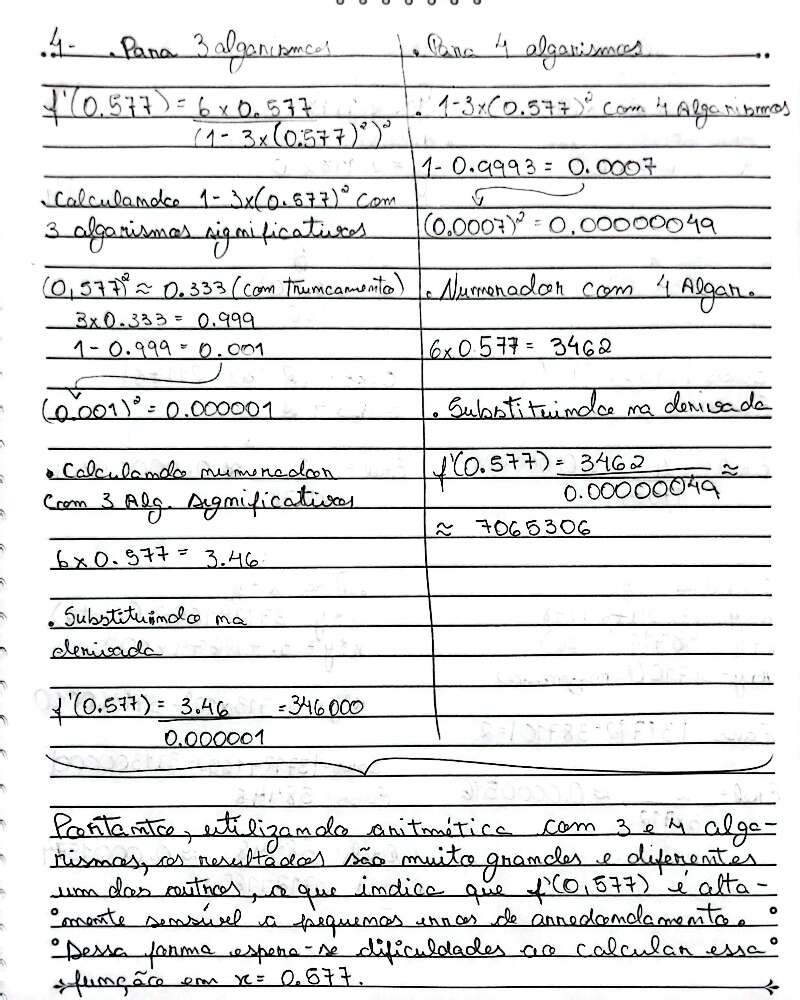 4- . Para 3 algarismos
f'(0.577) = 6 x 0.577
(1 - 3x(0.577)²)²
. Calculando 1-3x(0.577)² com
3 algarismos significativos
(0,577)² ≈ 0.333 (com truncamento)
3x0.333 = 0.999
1-0.999 = 0.001
(0.001)² = 0.000001
. Calculando numerador
com 3 Alg. significativos
6x0.577 = 3.46
. Substituindo na
derivada
f'(0.577) = 3.46 = 346000
0.000001
. Para 4 algarismos
. 1-3x(0.577)² com 4 Algarismos
1-0.9993 = 0.0007
(0.0007)² = 0.00000049
. Numerador com 4 Algar.
6x0.577 = 3462
. Substituindo na derivada
f'(0.577) = 3462 ≈
0.00000049
≈ 7065306
Portanto, utilizando aritmética com 3 e 4 alga-
rismos, os resultados são muito grandes e diferentes
um dos outros, o que indica que f'(0,577) é alta-
mente sensível a pequenos erros de arredondamento.
Dessa forma espera-se dificuldades ao calcular essa
função em x = 0.577.